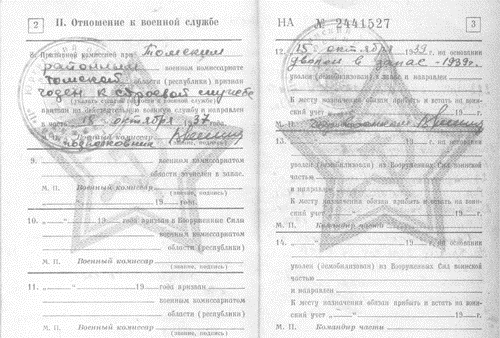 2 II. Отношение к военной службе
8. Призывной комиссией при Томским
районным военном комиссариате
Томской области (республики) признан
годен к строевой службе
(указать годность к военной службе)
призван на действительную военную службу и направлен
в часть 15 октября 1937
подполковник
(звание, подпись)
9. военным комиссариатом
области зачислен в запас.
М. П. Военный комиссар
(звание, подпись)
„ “ 19 года.
10. „ “ 19 года призван в Вооруженные Силы
военным комиссариатом
области (республики)
М. П. Военный комиссар
(звание, подпись)
11. „ “ 19 года призван
военным комиссариатом
области (республики)
М. П. Военный комиссар
(звание, подпись)
НА № 2441527 3
12. 15 октября 1939 г. на основании
уволен в запас - 1939 г.
уволен (демобилизован) в запас и направлен
К месту жительства обязан прибыть и встать на воин-
ский учет 19 г.
М. П.
13. „ “ 19 г. на основании
уволен (демобилизован) из Вооруженных Сил воинской
частью
и направлен
К месту назначения обязан прибыть и встать на воин-
ский учет „ “ 19 г.
М. П. Командир части
14. „ “ 19 г. на основании
уволен (демобилизован) из Вооруженных Сил воинской
частью
и направлен
К месту назначения обязан прибыть и встать на воин-
ский учет „ “ 19 г.
М. П. Командир части